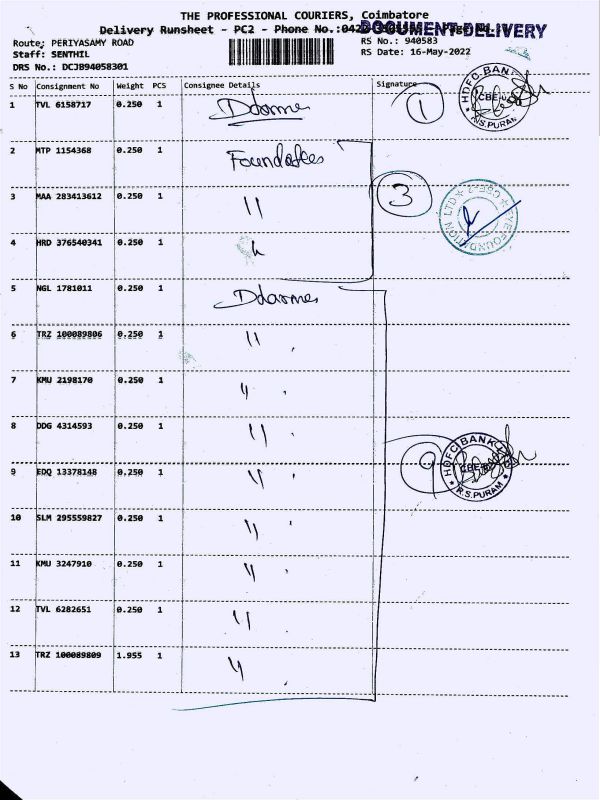 THE PROFESSIONAL COURIERS, Coimbatore
Delivery Runsheet - PC2 - Phone No.:042
DOCUMENT DELIVERY
Route: PERIYASAMY ROAD
RS No.: 940583
Staff: SENTHIL
RS Date: 16-May-2022
DRS No.: DCJB94058301
S No Consignment No Weight PCS Consignee Details Signature
1 TVL 6158717 0.250 1 1
HDFC BANK CBE R.S.PURAM
2 MTP 1154368 0.250 1
3 MAA 283413612 0.250 1 " 3
EYE FOUNDATION LTD CBE-2
4 HRD 376540341 0.250 1 "
5 NGL 1781011 0.250 1
6 TRZ 100089806 0.250 1 "
7 KMU 2198170 0.250 1 "
8 DDG 4314593 0.250 1 "
9 EDQ 13378148 0.250 1 " 9
HDFC BANK CBE R.S.PURAM
10 SLM 295559827 0.250 1 "
11 KMU 3247910 0.250 1 "
12 TVL 6282651 0.250 1 "
13 TRZ 100089809 1.955 1 "